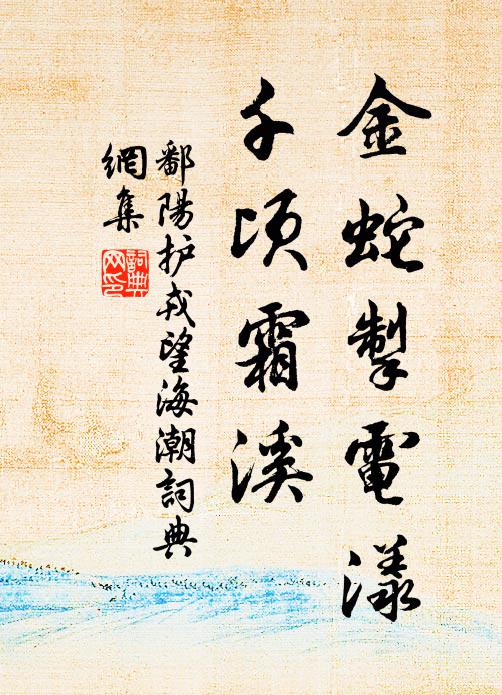 金蛇掣電漾
千頃霜溪
鄱陽护戎望海潮詞典
網集
詞典
网印